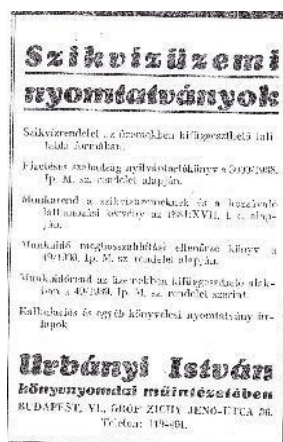 Szikvízüzemi
nyomtatványok
Szikvízrendelet az üzemekben kifüggeszthető fali
tábla formában.
Fizetéses szabadság nyilvántartókönyv a
Ip. M. sz. rendelet alapján.
Munkarend a szikvízüzemeknek és a hozzávaló
törvény az 1884:XVII. t. c. alap-
ján.
Munkaidő meghosszabbítási ellenőrző könyv a
Ip. M. sz. rendelet alapján.
Munkaidőrend az üzemekben kifüggeszthető alak-
ban a Ip. M. sz. rendelet szerint.
Kalkulációs és egyéb könyvelési nyomtatvány űr-
lapok
Urbányi István
könyvnyomdai műintézetében
BUDAPEST, VI., GRÓF ZICHY JENŐ-UTCA 36.
Telefon: 119-461.